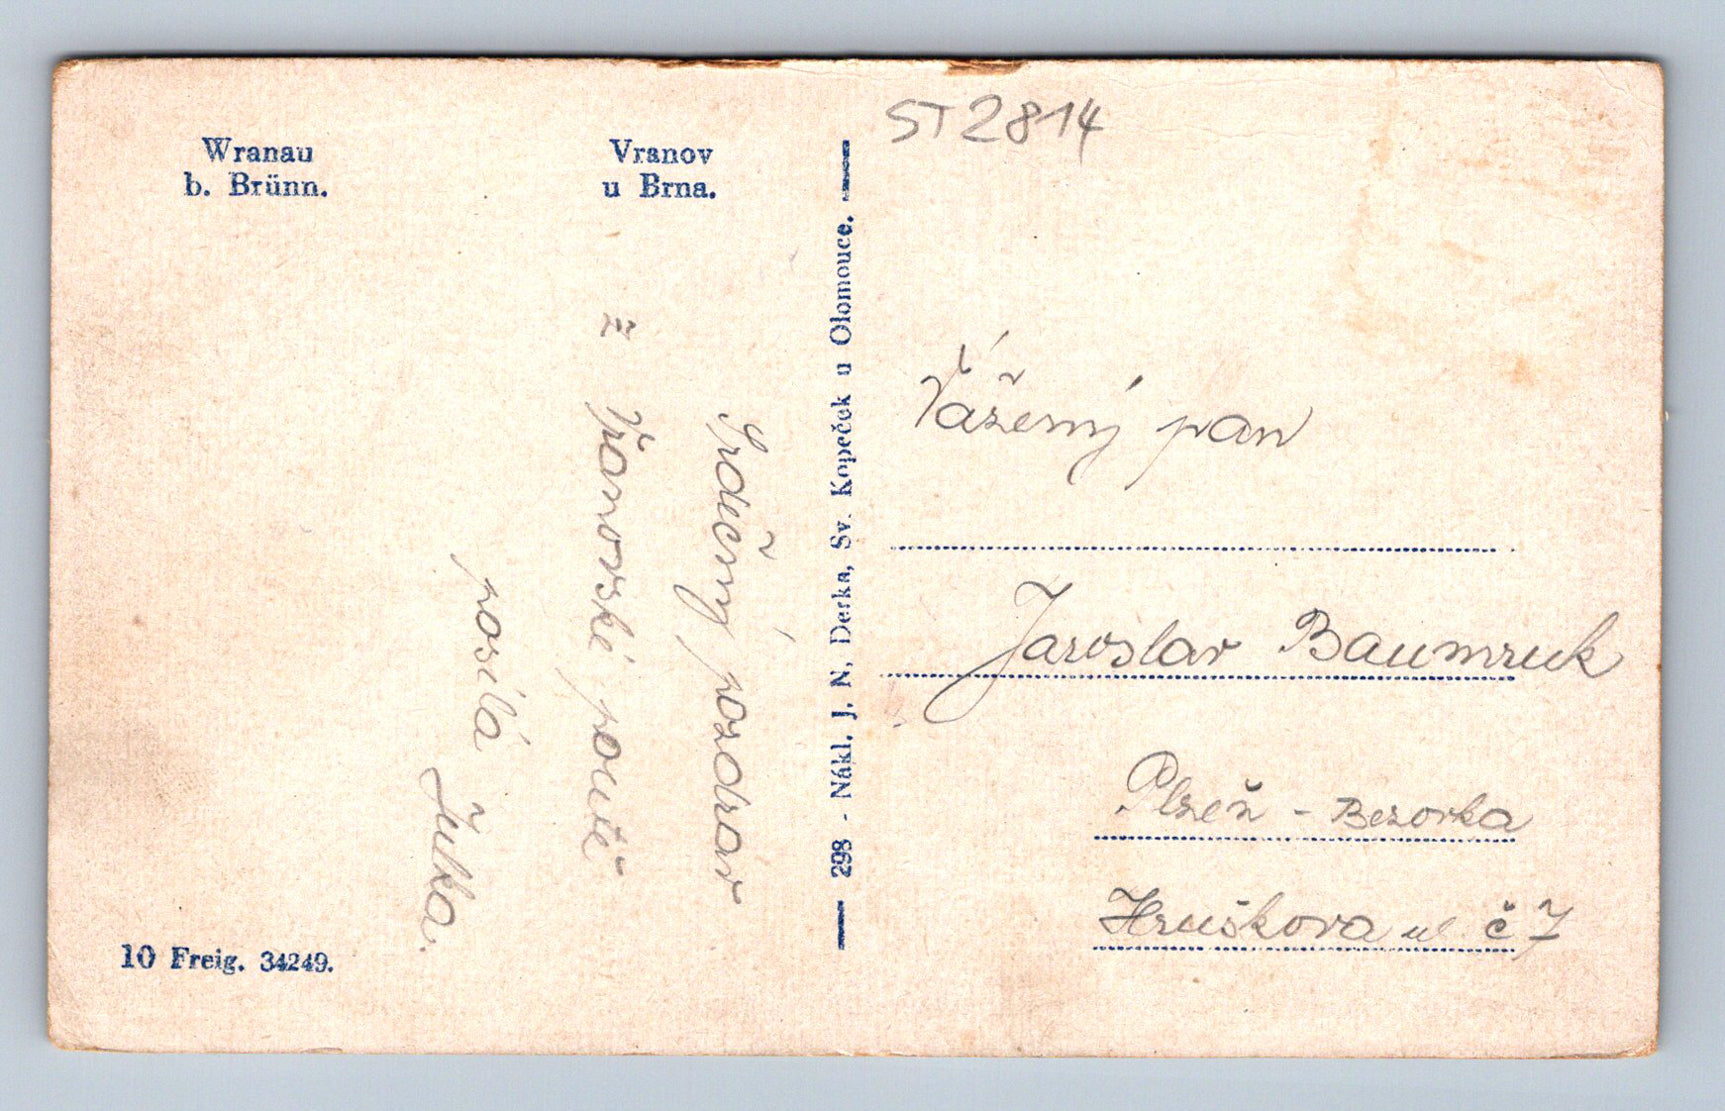 Wranau
b. Brünn.
Vranov
u Brna.
Srdečný pozdrav
z Vranovské poutě
posílá Julka.
10 Freig. 34249.
298 - Nákl. J. N. Derka, Sv. Kopeček u Olomouce.
ST2814
Vážený pan
Jaroslav Baumruk
Plzeň - Bezovka
Hruškova ul. č 7